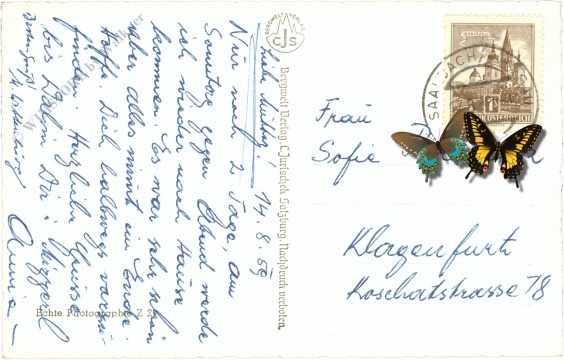 Liebe Mutting! 14.8.59
Nur noch 2 Tage am
Sonntag gegen Abend werde
ich wieder nach Hause
kommen. Es war sehr schön
aber alles nimmt ein Ende.
Hoffe, Dich halbwegs vorzu-
finden. Herzliche Grüsse
bis dahin Dir u.
Annie
BERGWELT VERLAG
CJS
Bergwelt Verlag, C. Jurischek Salzburg, Nachdruck verboten.
Echte Photographie Z 2
REPUBLIK ÖSTERREICH
SAALBACH
Frau
Sofie
Klagenfurt
Koschatstrasse 78